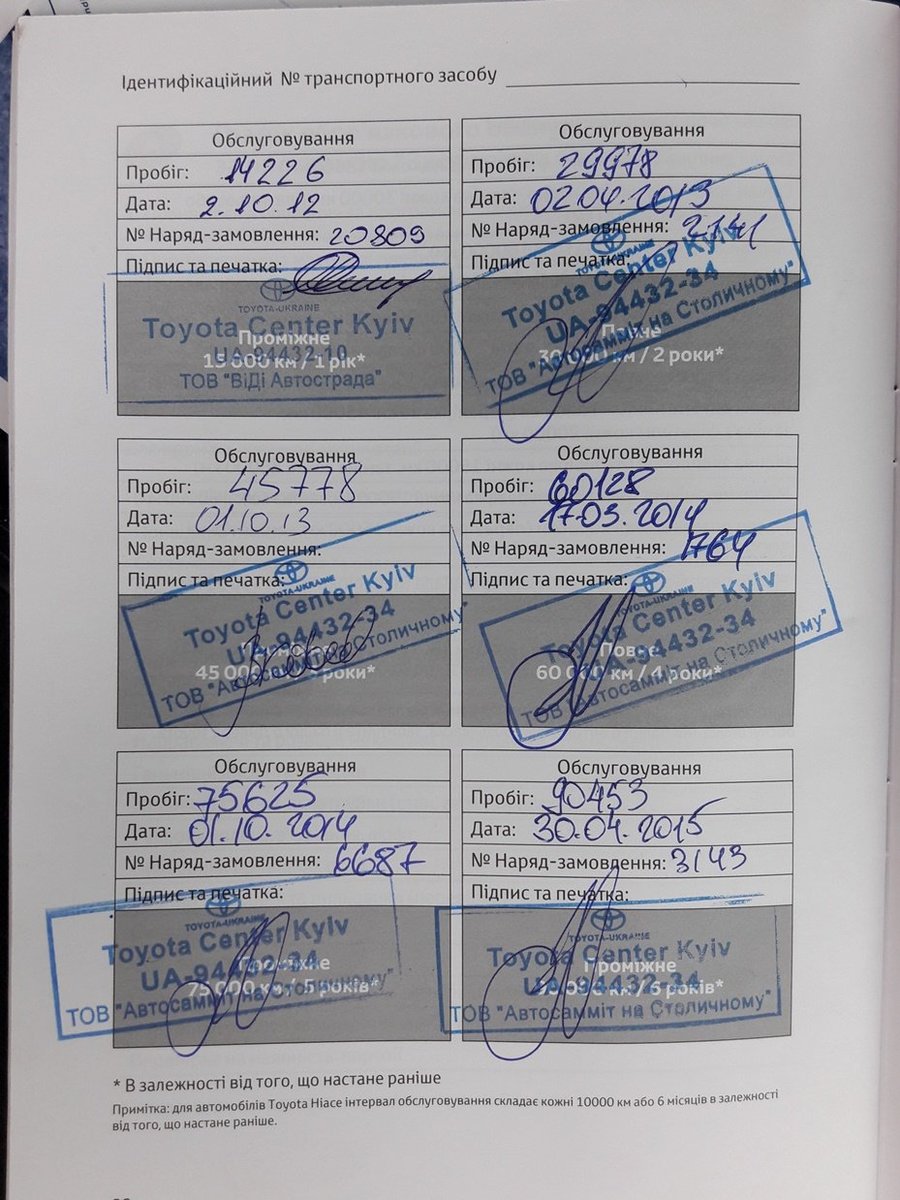 Ідентифікаційний № транспортного засобу
Обслуговування
Пробіг: 14226
Дата: 2.10.12
№ Наряд-замовлення: 20809
Підпис та печатка:
TOYOTA-UKRAINE
Toyota Center Kyiv
Проміжне
UA-94432-10
15 000 км / 1 рік*
ТОВ "ВіДі Автострада"
Обслуговування
Пробіг: 29978
Дата: 02.04.2013
№ Наряд-замовлення: 2141
Підпис та печатка:
TOYOTA-UKRAINE
Toyota Center Kyiv
UA-94432-34
ТОВ "Автосамміт на Столичному"
км / 2 роки*
Обслуговування
Пробіг: 45778
Дата: 01.10.13
№ Наряд-замовлення:
Підпис та печатка:
TOYOTA-UKRAINE
Toyota Center Kyiv
UA-94432-34
ТОВ "Автосамміт на Столичному"
45 000 роки*
Обслуговування
Пробіг: 60128
Дата: 17.03.2014
№ Наряд-замовлення: 1764
Підпис та печатка:
TOYOTA-UKRAINE
Toyota Center Kyiv
UA-94432-34
Повне
60 000 км / 4 роки*
ТОВ "Автосамміт на Столичному"
Обслуговування
Пробіг: 75625
Дата: 01.10.2014
№ Наряд-замовлення: 6687
Підпис та печатка:
TOYOTA-UKRAINE
Toyota Center Kyiv
Проміжне
UA-94432-34
75 000 км / 5 років*
ТОВ "Автосамміт на Столичному"
Обслуговування
Пробіг: 90453
Дата: 30.04.2015
№ Наряд-замовлення: 3143
Підпис та печатка:
TOYOTA-UKRAINE
Toyota Center Kyiv
Проміжне
UA-94432-34
км / 6 років*
ТОВ "Автосамміт на Столичному"
* В залежності від того, що настане раніше
Примітка: для автомобілів Toyota Hiace інтервал обслуговування складає кожні 10000 км або 6 місяців в залежності
від того, що настане раніше.